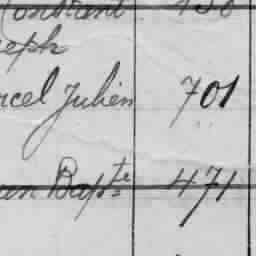 Constant 430
eph
rcel Julien 701
an Bapte 471